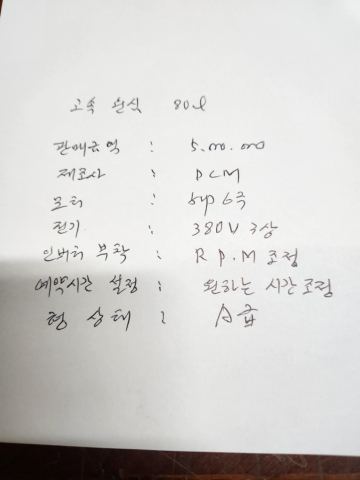 고속 원심 80l
판매금액 : 5.000.000
제조사 : DCM
모터 : 5HP 6극
전기 : 380V 3상
인버터 부착 : R P.M 조정
예약시간 설정 : 원하는 시간 조정
현 상태 : A급